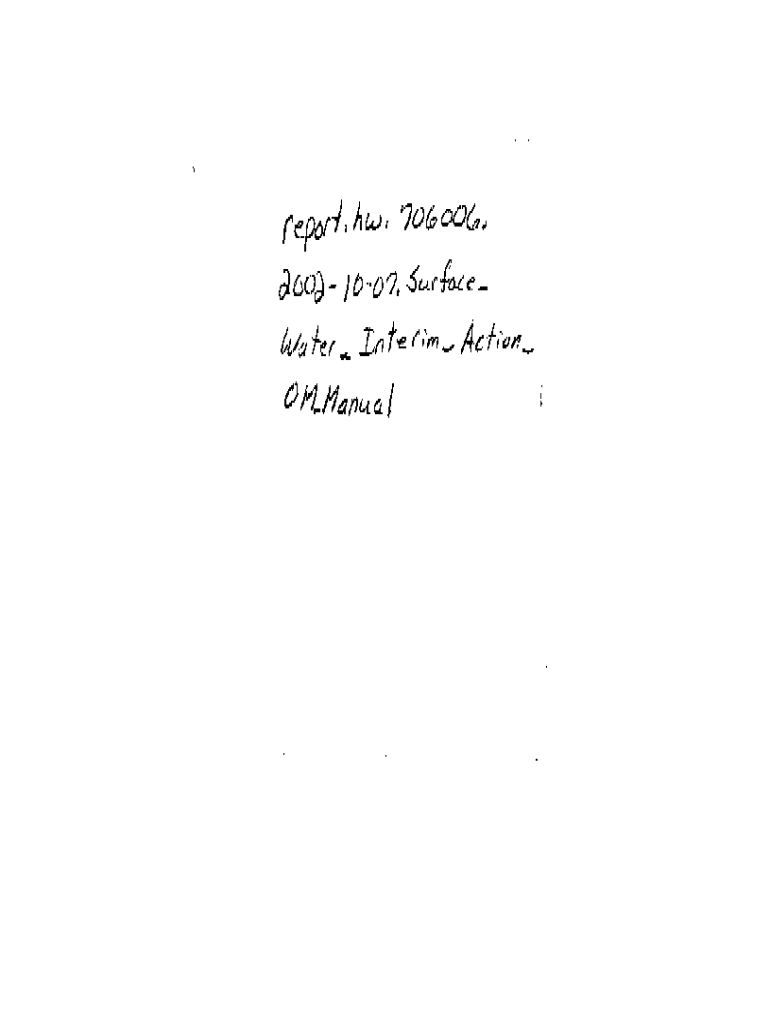 report.hw.706006.
2002-10-07.Surface_
Water_Interim_Action_
OM_Manual